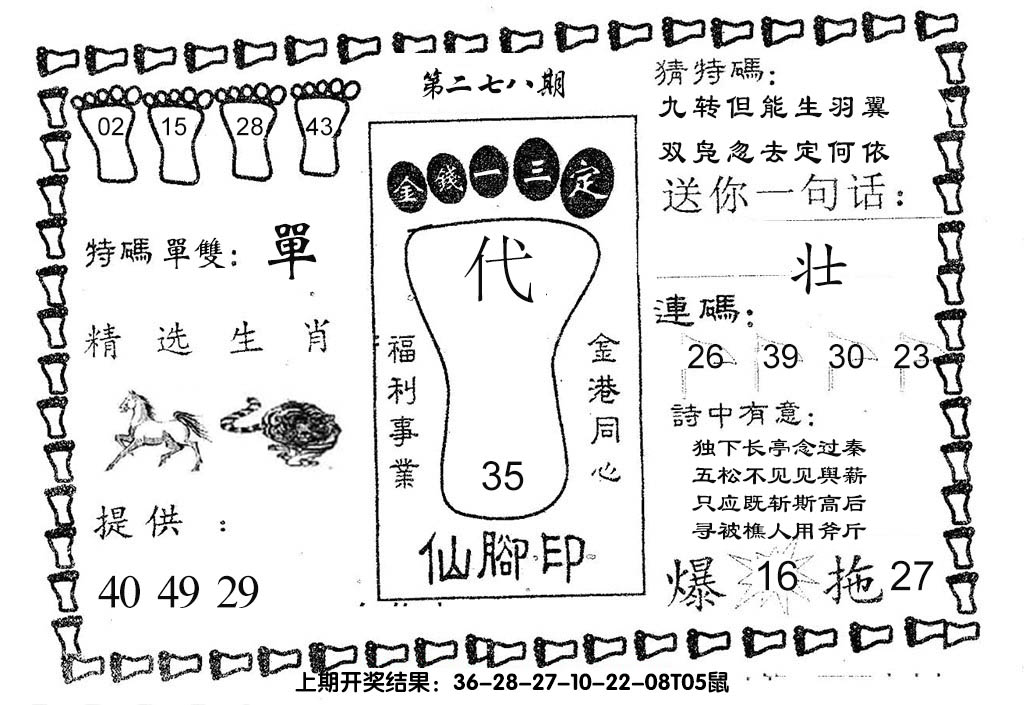 第二七八期
02 15 28 43
特碼單雙：單
精选生肖
提供：
40 49 29
金錢一三定
代
福利事業
金港同心
35
仙腳印
猜特碼：
九转但能生羽翼
双凫忽去定何依
送你一句话：
壮
連碼：
26 39 30 23
詩中有意：
独下长亭念过秦
五松不见见與薪
只应既斩斯高后
寻被樵人用斧斤
爆 16 拖 27
上期开奖结果：36-28-27-10-22-08T05鼠